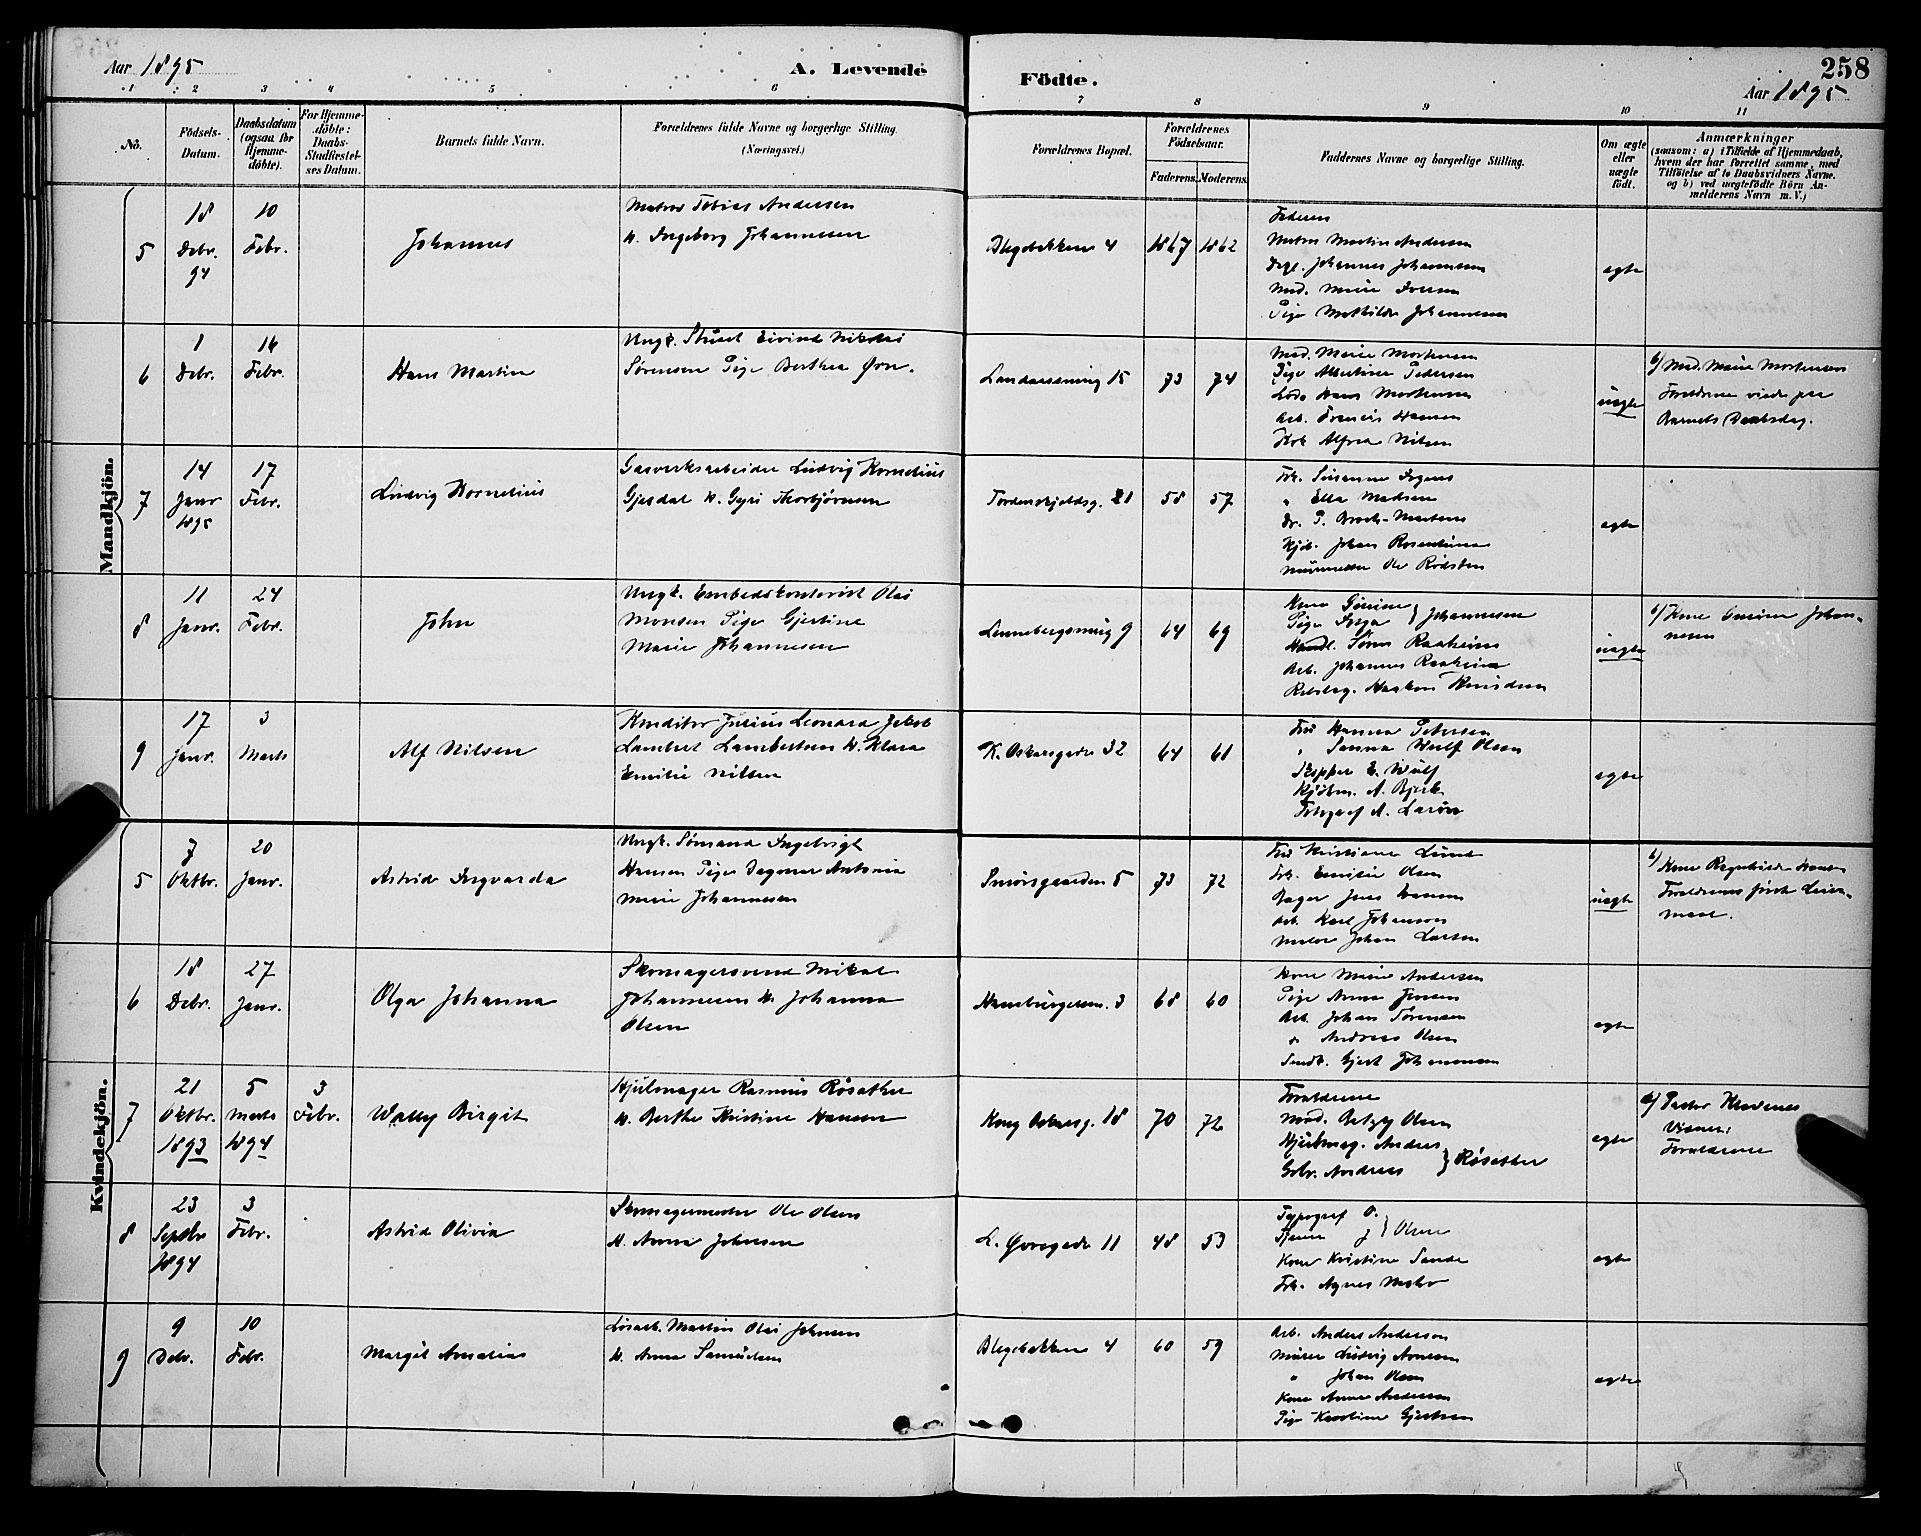 258
Aar 1895
A. Levende
Födte.
Aar 1895
1 2 3 4 5 6 7 8 9 10 11
No.
Födsels-
Datum.
Daabsdatum
(ogsaa for
Hjemme-
döbte).
For Hjemme-
döbte:
Daabs-
Stadfæstel-
ses Datum.
Barnets fulde Navn.
Forældrenes fulde Navne og borgerlige Stilling.
(Næringsvei.)
Forældrenes Bopæl.
Forældrenes
Födselsaar.
Faderens.
Moderens.
Faddernes Navne og borgerlige Stilling.
Om ægte
eller
uægte
födt.
Anmærkninger
(saasom: a) i Tilfælde af Hjemmedaab,
hvem der har forrettet samme, med
Tilföielse af to Daabsvidners Navne.
og b) ved uægtefödte Börn An-
melderens Navn m. V.)
Mandkjön.
5
18
Debr.
94
10
Febr.
Johannes
Matros Tobias Andersen
H. Ingeborg Johannesen
Blegebakken 4
1867
1862
Faderen
Matros Martin Andersen
Johannes Johannesen
Mad. Marie Iversen
Pige Mathilde Johannesen
ægte
6
1
Debr.
16
Febr.
Hans Martin
Ungk. Stuert Eivind Nikolai
Sørensen Pige BertheaØrn.
15
73
74
Mad. Marie Mortensen
Pige Albertine Pedersen
Lods Hans Mortensen
Arb. Francis Hansen
Kok Alfred Nilsen
uægte
b) Mad. Marie Mortensen
Forældrene viede paa
Barnets Daabsdag.
7
14
Janr
1895
17
Febr.
Ludvig Kornelius
Gasverksarbeider Ludvig Kornelius
Gjesdal H. Gyri Thorbjørnsen
Tordenskjoldsg. 21
58
57
Frk. Susanne
" Ella Madsen
Dr. P. Broch-Martens
Kjøb. Johan Rosenlund
Murmester Ole Rødsten
ægte
8
11
Janr.
24
Febr.
John
Ungk. Embedskontorist Olai
Monsen Pige Gjertine
Marie Johannesen
9
64
69
Kone Gurine } Johannesen
Pige
Handl. Søren Raaheim
Arb. Johannes Raaheim
Rebslag. Haakon Knudsen
uægte
b) Kone Gurine Johan-
nesen
9
17
Janr.
3
Marts
Alf Nilsen
Konditor Julius Leonard Jakob
Lambert Lambertsen H. Klara
Emilie Nilsen
K. Oskarsgade 32
64
61
Fru Hanna Petersen
" Sanna Wulf Olsen
Skipper E. Wulf
Kjøbm. A. Bjerk
Fotograf A.
ægte
Kvindekjön.
5
7
Oktbr.
20
Janr.
Astrid Ingvarda
Ungk. Sømand Ingebrigt
Hansen Pige Dagmar Antonia
Marie Johannesen
Smørsgaarden 5
73
72
Fru Kristiane Lund
Frk. Emilie Olsen
Bager Jens Hansen
Arb. Karl Johanson
Maler Johan Larsen
uægte
b) Kone
Forældrenes første Leier-
maal.
6
18
Debr.
27
Janr.
Olga Johanna
Skomagersvend Mikal
Johannesen H. Johanna
Olsen
3
68
60
Kone Marie Andersen
Pige Anna Jensen
Arb. Johan Sørensen
" Andreas Olsen
Gjert Johannesen
ægte
7
21
Oktbr.
1893
5
Marts
1894
3
Febr.
Wally Birgit
Hjulmager Rasmus Røsæther
H. Berthe Kristine Hansen
Kong Oskarsg. 18
70
72
Forældrene
Mad. Betzy Olsen
Hjulmag. Anders
Andreas } Røsæther
ægte
a) Pastor Klaveness
Vidner:
Forældrene
8
23
Septbr
1894
3
Febr.
Astrid Olivia
Skomagermester Ole Olsen
H. Anna Johnsen
L. Øvregade 11
48
53
Typograf O.
J. } Olsen
Kone Kristine Sande
Frk. Agnes
ægte
9
9
Debr.
10
Febr.
Margit Amalia
Løsarb. Martin Olai Johnsen
H. Anna Samuelsen
Blegebakken 4
60
59
Arb. Anders Anderson
Murer Ludvig Arnesen
" Johan Olsen
Kone Anna Andersen
Pige Karoline Gjertsen
ægte